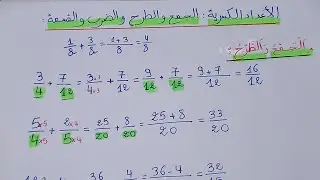 الأعداد الكسرية : الجمع والطرح والضرب والقسمة
1/8 + 3/8 = 1+3/8 = 4/8
الجمع والطرح :
3/4 + 7/12 = 3×3/4×3 + 7/12 = 9/12 + 7/12 = 9+7/12 = 16/12
5×5/4×5 + 2×4/5×4 = 25/20 + 8/20 = 25+8/20 = 33/20
36 - 4 = 36-4 = 32